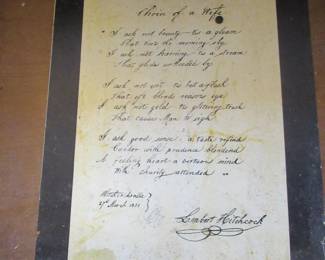 Choice of a Wife
I ask not beauty - tis a gleam
That tints the morning sky
I ask not learning - tis a stream
That glides unheeded by
I ask not wit - tis but a flash
That oft blinds reasons eye
I ask not gold - tis glittering trash
That causes Man to sigh
I ask good sense - a taste refined
Candor with prudence blended
A feeling heart a virtuous mind
With charity attended
March 1851
Lambert Hitchcock